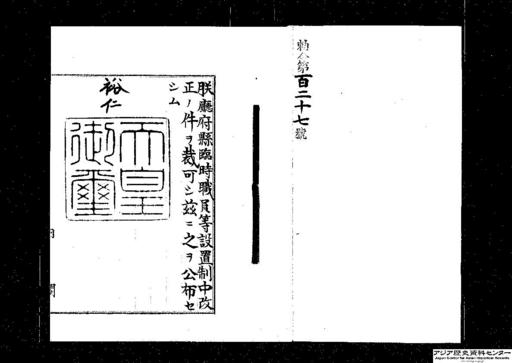 勅令第百二十七號
朕廳府縣臨時職員等設置制中改
正ノ件ヲ裁可シ茲ニ之ヲ公布セ
シム
裕仁
天皇
御璽
内閣
アジア歴史資料センター
Japan Center for Asian Historical Records